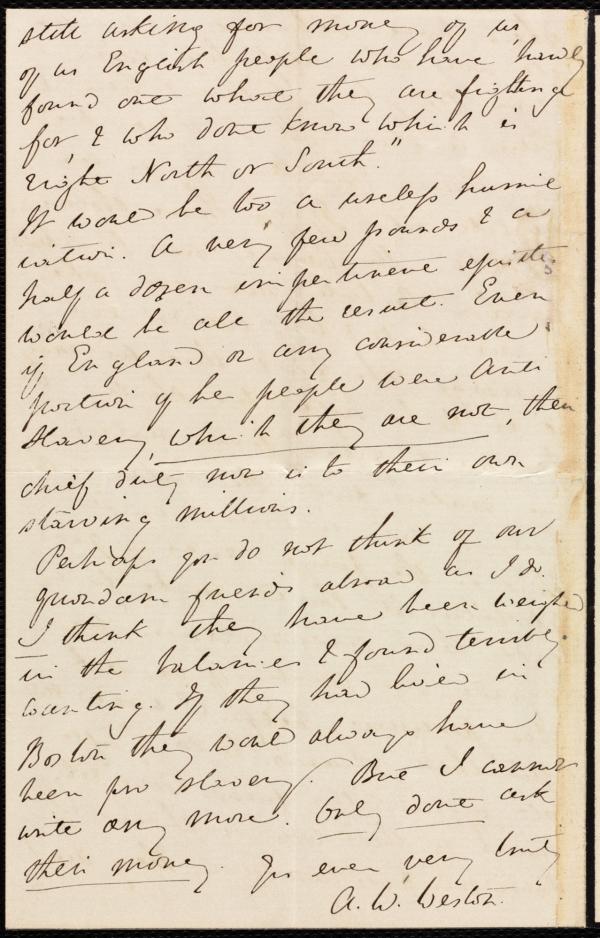 still asking for money of us,
of us English people who have hardly
found out what they are fighting
for, & who dont know which is
right North or South."
It would be too a useless humil
iation. A very few pounds & a
half a dozen impertinent epistles
would be all the result. Even
if England or any considerable
portion of her people were Anti
Slavery, which they are not, their
chief duty now is to their own
starving millions.
Perhaps you do not think of our
quondam friends abroad as I do.
I think they have been weighed
in the balances & found terribly
wanting. If they had lived in
Boston they would always have
been pro slavery. But I cannot
write any more. Only dont ask
their money. Yrs ever very truly
A. W. Weston.